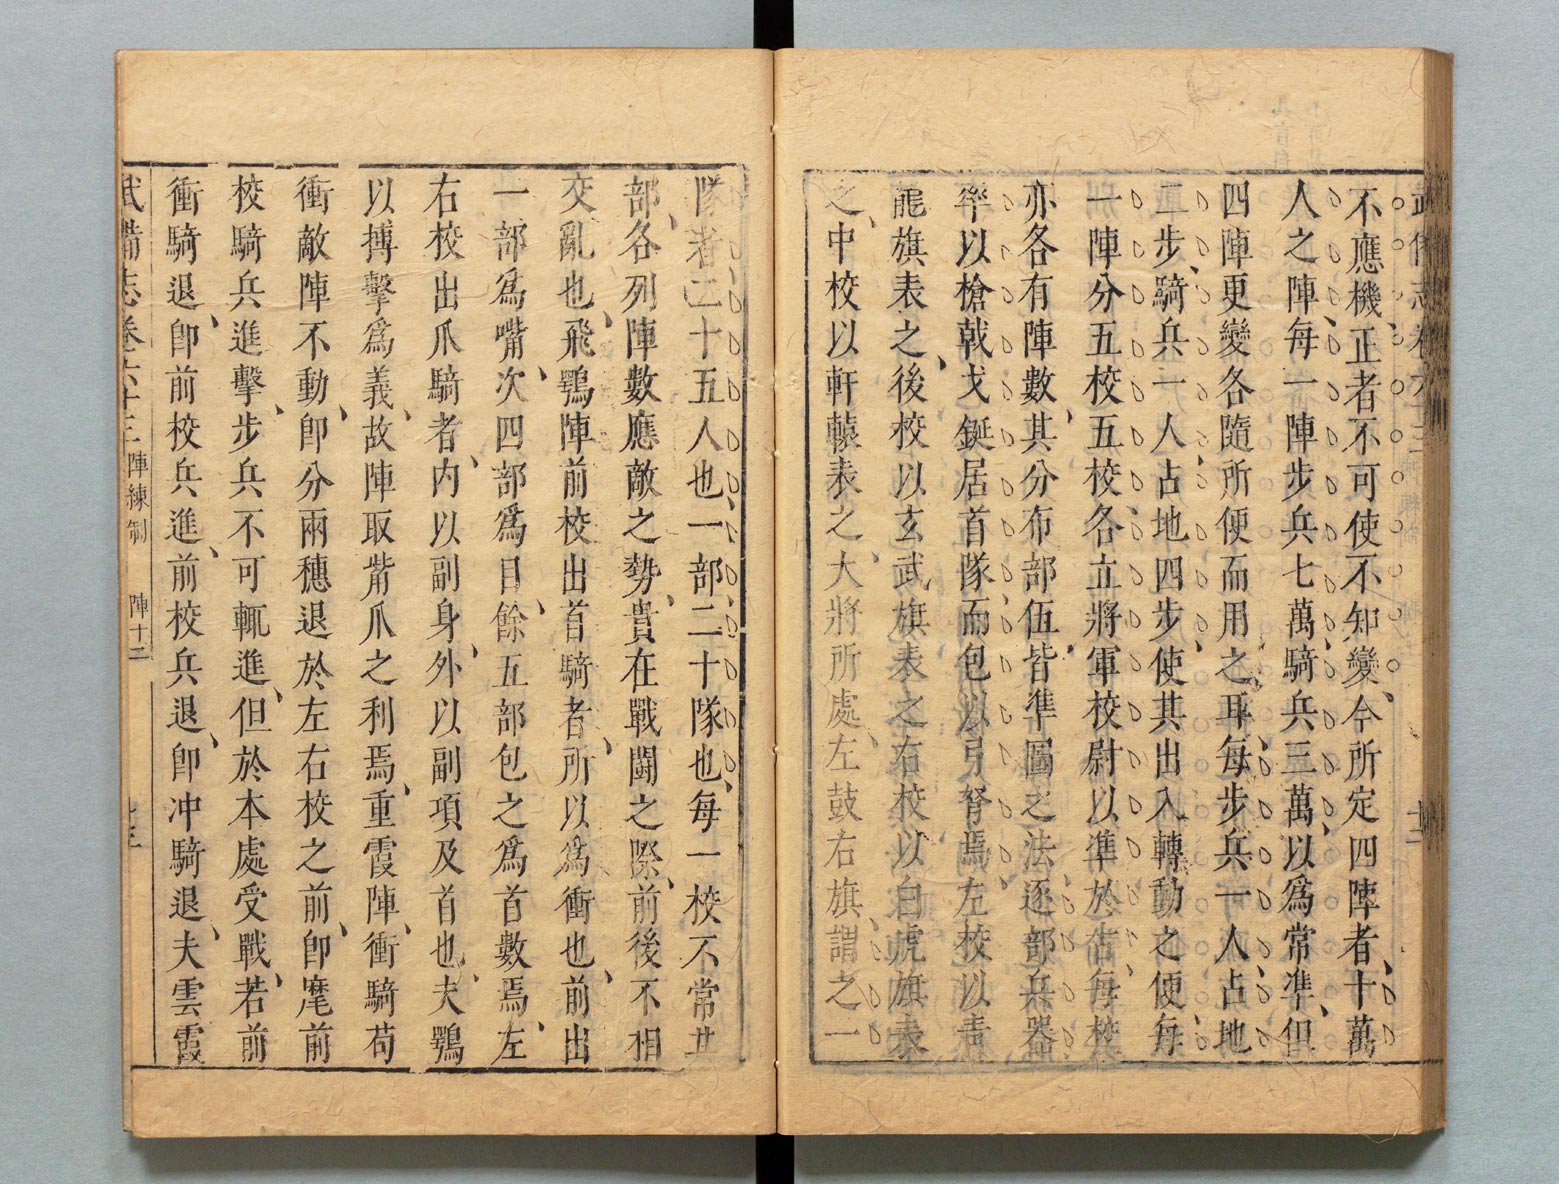 武備志卷六十三 陣練制 十二
不應機、正者不可使不知變、今所定四陣者、十萬
人之陣、每一陣步兵七萬、騎兵三萬、以爲常準、但
四陣更變各隨所便而用之耳、每步兵一人、占地
二步、騎兵一人、占地四步、使其出入轉動之便、每
一陣分五校、五校各立將軍校尉以準於古、每校
亦各有陣數、其分布部伍、皆準圖之法、逐部兵器
率以槍戟戈鋋居首隊、而包以弓弩焉、左校以青
龍旗表之、後校以玄武旗表之右校以白虎旗表
之、中校以軒轅表之、大將所處、左鼓右旗、謂之一
隊者二十五人也、一部二十隊也、每一校不常其
部、各列陣數應敵之勢、貴在戰鬪之際、前後不相
交亂也、飛鶚陣前校出首騎者、所以爲衝也、前出
一部爲嘴、次四部爲目、餘五部包之爲首數焉、左
右校出爪騎者、內以副身、外以副項及首也、夫鶚
以搏擊爲義、故陣取觜爪之利焉、重霞陣、衝騎苟
衝敵陣不動、卽分兩穗退於左右校之前、卽麾前
校騎兵進擊、步兵不可輒進、但於本處受戰、若前
衝騎退、卽前校兵進、前校兵退、卽冲騎退、夫雲霞
武備志卷六十三 陣練制 陣十二